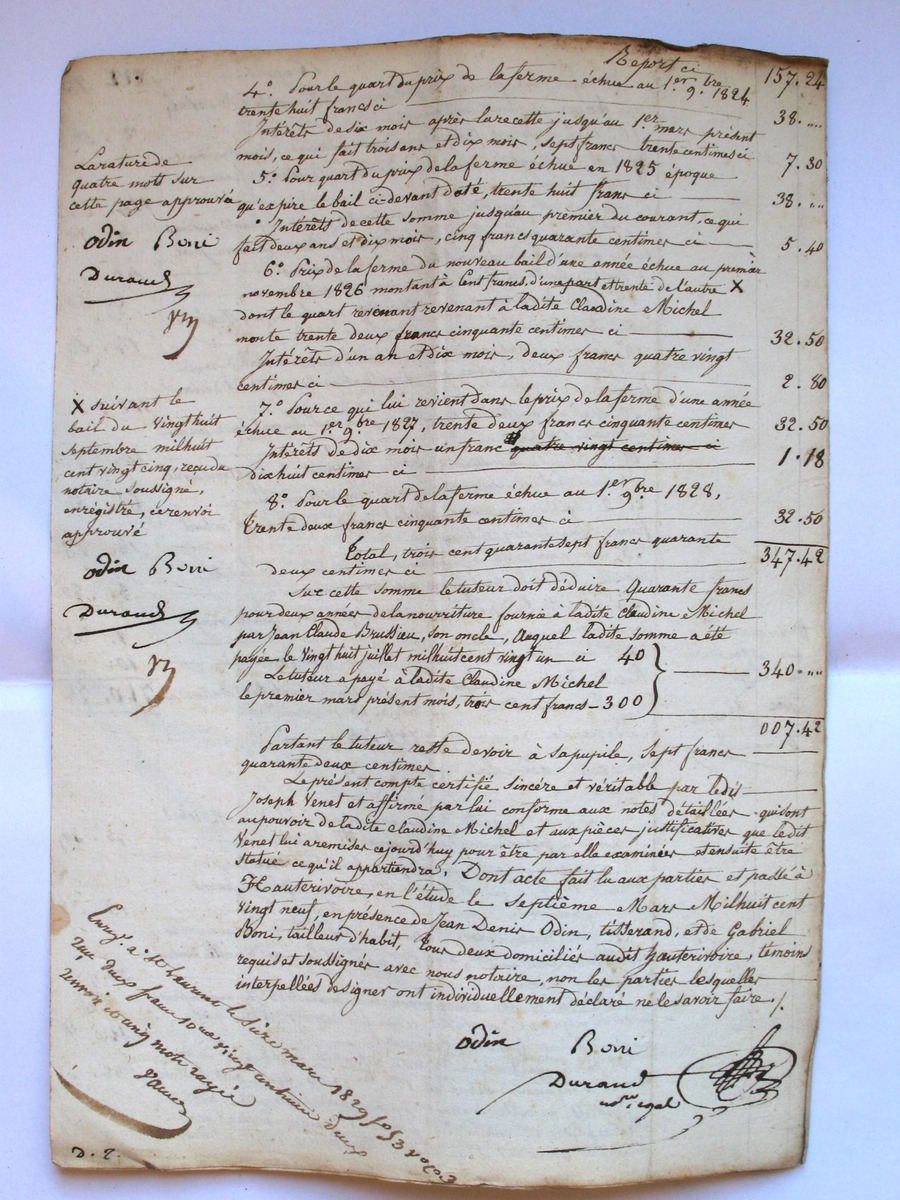 Report ci 157.24
4°. Pour le quart du prix de la ferme échue au 1.er 9.bre 1824
trente huit francs ci 38. ....
Intérêts de dix mois après la recette jusqu'au 1.er mars présent
mois, ce qui fait trois ans et dix mois, sept francs trente centimes ci 7.30
5°. Pour quart du prix de la ferme échue en 1825 époque
qu'expire le bail ci-devant daté, trente huit francs ci 38. ..
Intérêts de cette somme jusqu'au premier du courant, ce qui
fait deux ans et dix mois, cinq francs quarante centimes ci 5.40
6°. Prix de la ferme du nouveau bail d'une année échue au premier
novembre 1826 montant à Cent francs, d'une part et trente de l'autre X
dont le quart revenant revenant à ladite Claudine Michel
monte trente deux francs cinquante centimes ci 32.50
Intérêts d'un an et dix mois, deux francs quatre vingt
centimes ci 2.80
7.° Pour ce qui lui revient dans le prix de la ferme d'une année
échue au 1.er 9.bre 1827, trente deux francs cinquante centimes 32.50
Intérêts de dix mois un franc quatre vingt centimes ci
dix huit centimes ci 1.18
8.° Pour le quart de la ferme échue au 1.er 9.bre 1828,
trente deux francs cinquante centimes ci 32.50
Total, trois cent quarante sept francs quarante
deux centimes ci 347.42
Sur cette somme le tuteur doit déduire Quarante francs
pour deux années de la nourriture fournie à ladite Claudine Michel
par Jean Claude Brussieu, son oncle, Auquel ladite somme a été
payée le vingt huit juillet mil huit cent vingt un ci 40
Le tuteur a payé à ladite Claudine Michel 340. ..
le premier mars présent mois, trois cent francs - 300
007.42
Partant le tuteur reste devoir à sa pupile, sept francs
quarante deux centimes.
Le présent compte certifié sincère et véritable par ledit
Joseph Venet et affirmé par lui conforme aux notes détaillées qui sont
au pouvoir de ladite Claudine Michel et aux pièces justificatives que ledit
Venet lui a remises cejourd'huy pour être par elle examinées et ensuite être
statué ce qu'il appartiendra. Dont acte fait lu aux parties et passé à
Hauterivoire, en l'étude le septième Mars Mil huit cent
vingt neuf, en présence de Jean Denis Odin, tisserand, et de Gabriel
Boni, tailleur d'habit, tous deux domiciliés audit Hauterivoire, témoins
requis et soussignés avec nous notaire, non les parties lesquelles
interpellées de signer ont individuellement déclaré ne le savoir faire ./.
Odin Boni
Durand
La rature de
quatre mots sur
cette page approuvé
Odin Boni
Durand
X suivant le
bail du vingt huit
septembre mil huit
cent vingt cinq, reçu du
notaire soussigné,
enrégistré, ce renvoi
approuvé
Odin Boni
Durand
Enreg. à St Laurent le seize mars 1829 f.o 53
reçu deux francs vingt centimes
D. 2.